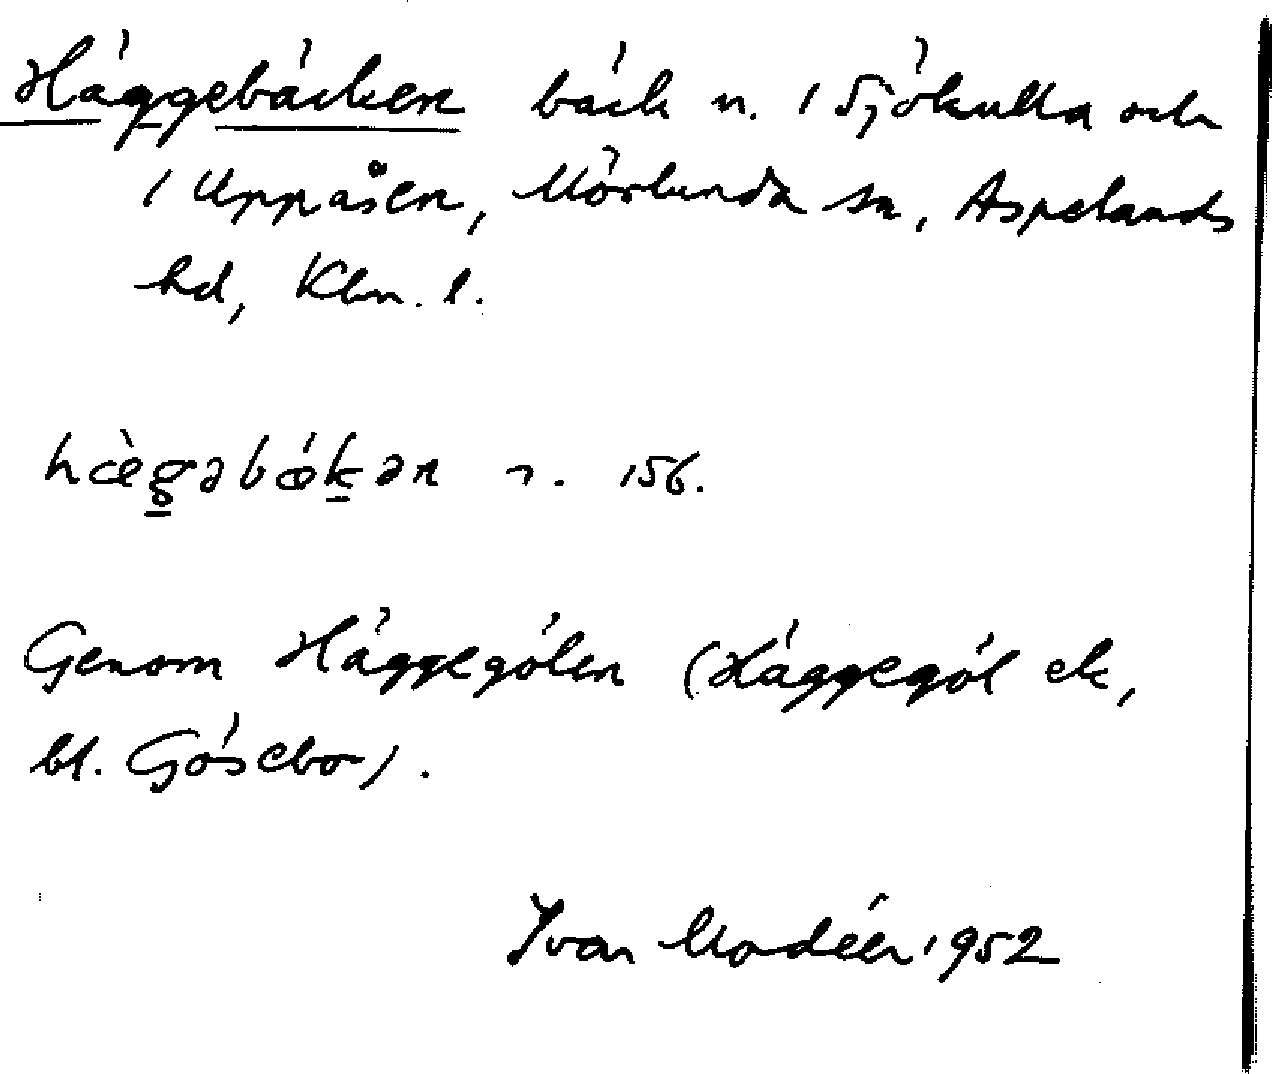 Häggebäcken bäck n. 1 Sjökulla och
1 Uppåsen, Mörlunda sn, Aspelands
hd, Klm. l.
hæ̀g̱əbǽḵən n. 156.
Genom Häggegölen (Häggegöl ek,
bl. Gösebo).
Yvar Modéer 1952